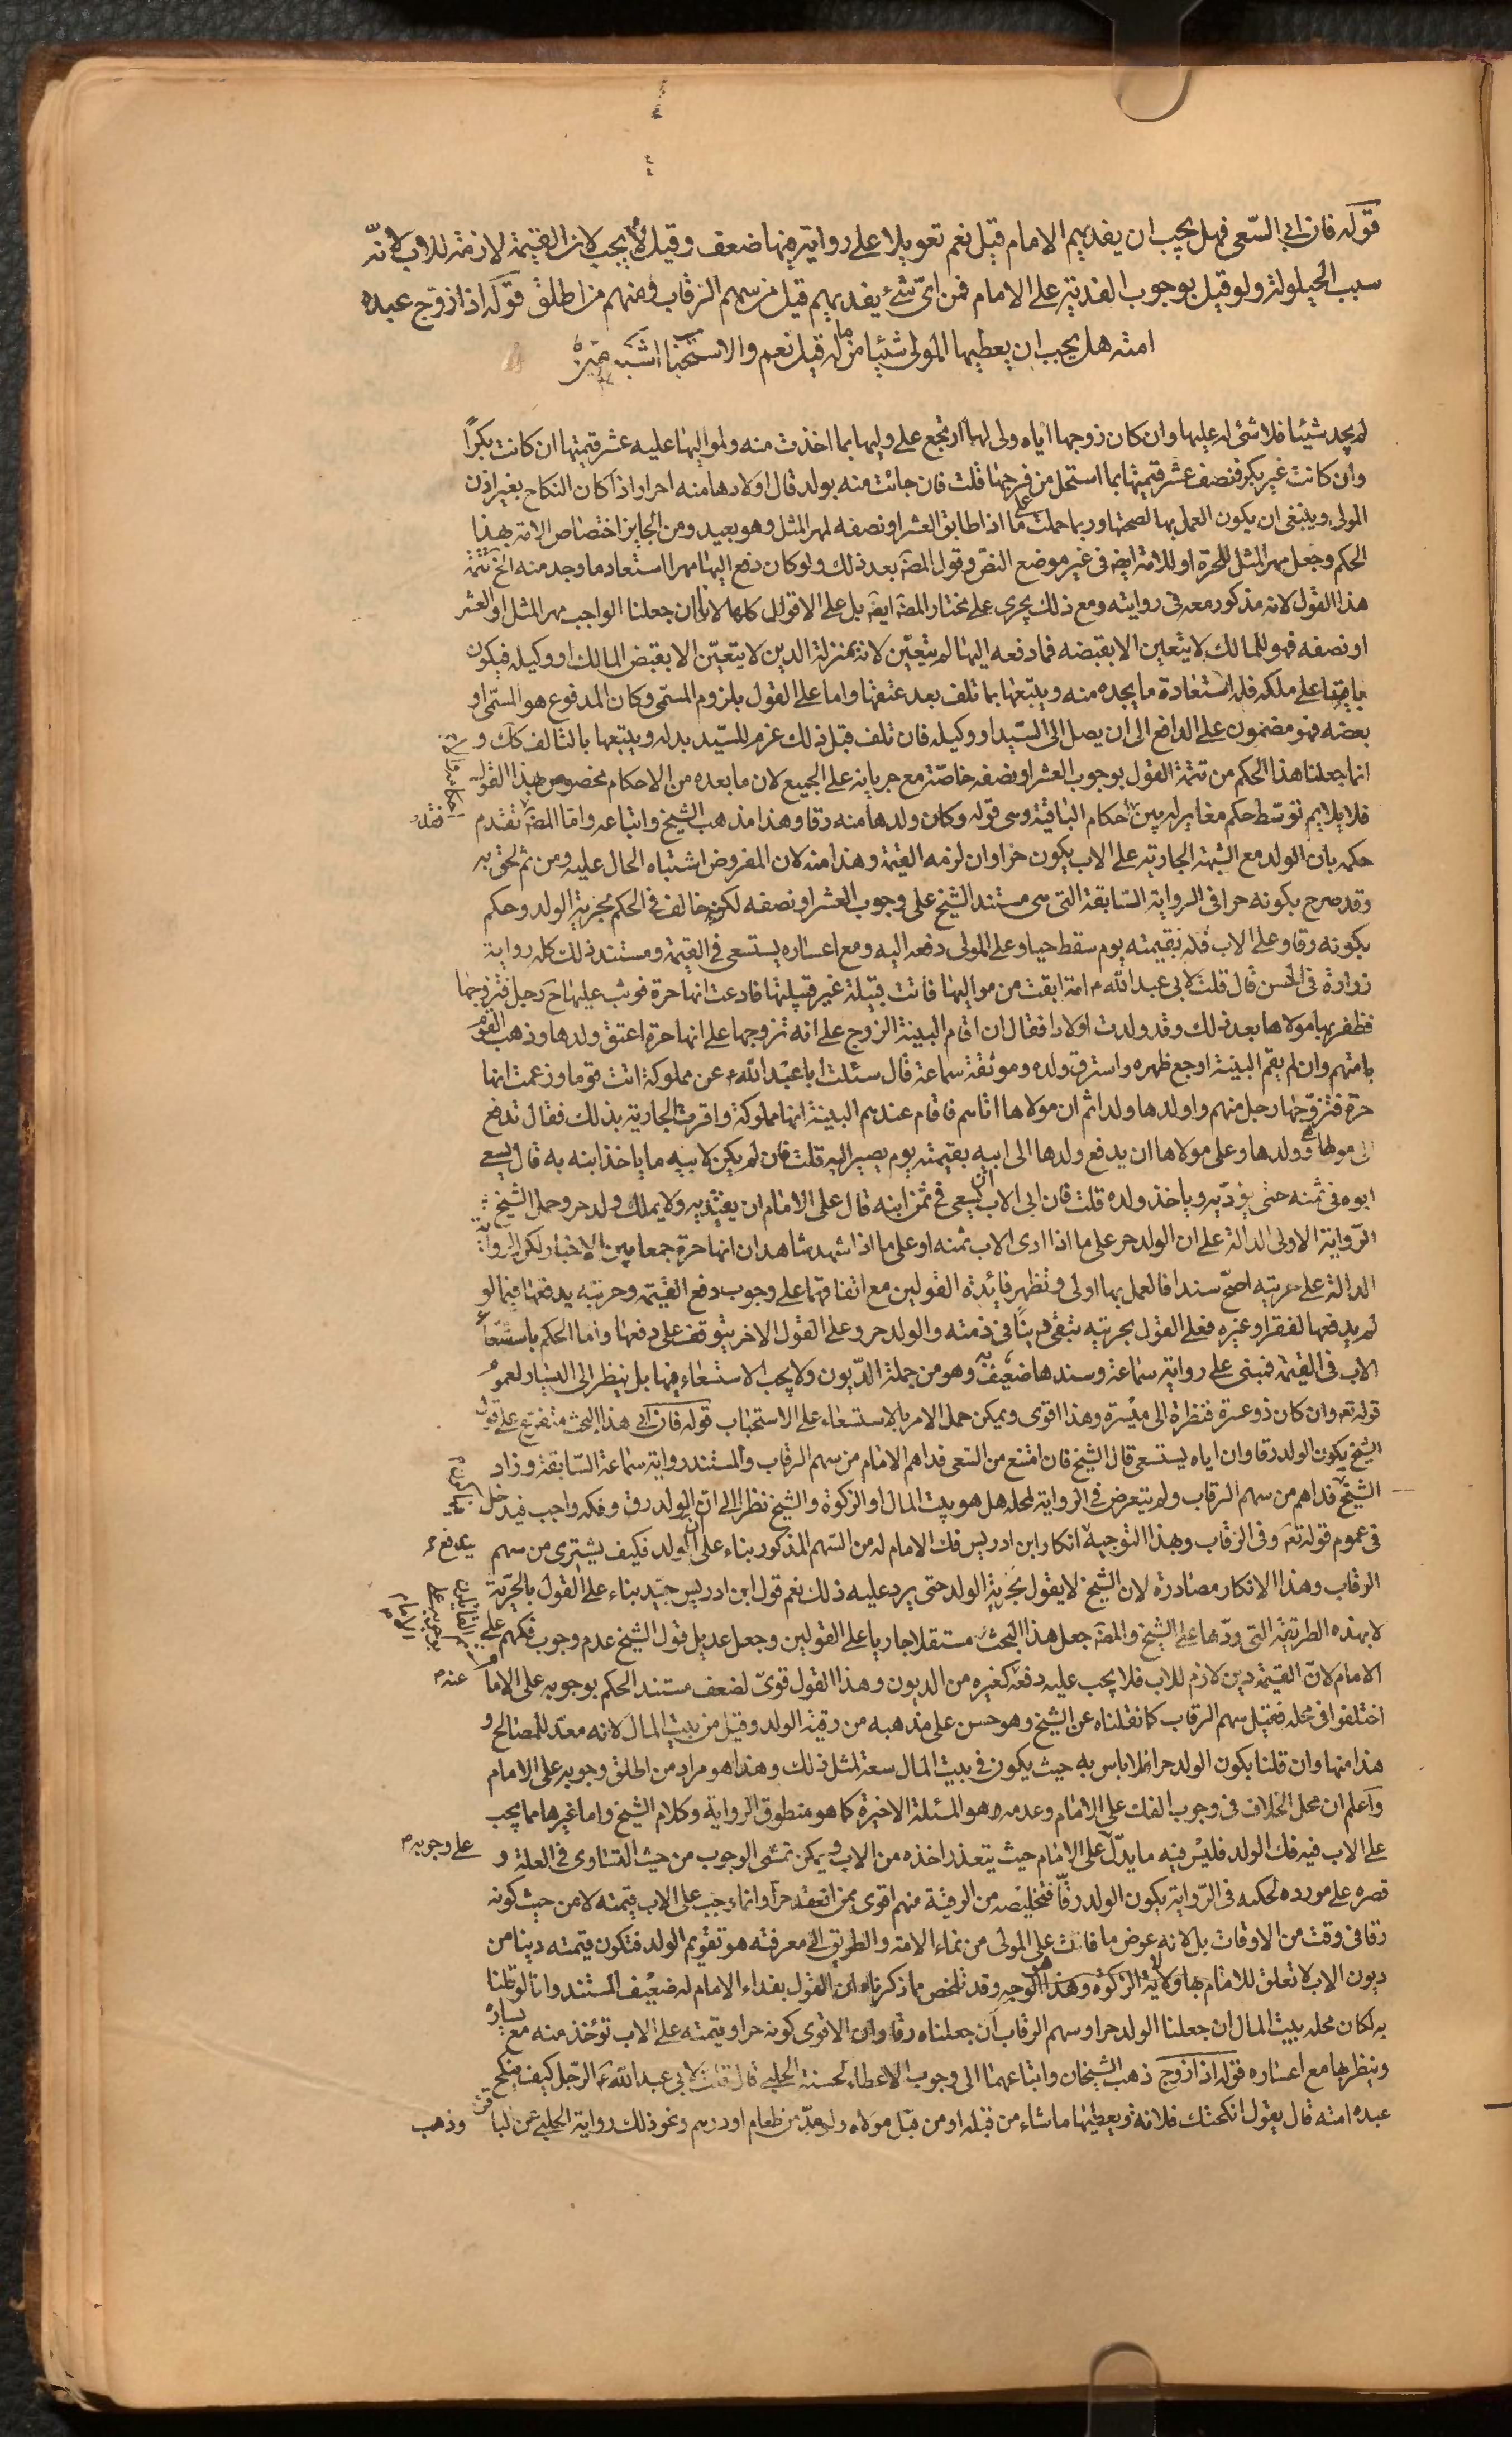 قوله فان ابى السّعى فهل يجب ان يفديهم الامام قيل نعم تعويلا على رواية فيها ضعف وقيل لا يجب لان القيمة لازمة للاب لانّه
سبب الحيلولة ولو قيل بوجوب الفدية على الامام فمن اىّ شئ يفديهم قيل من سهم الرقاب ومنهم من اطلق قوله اذا زوّج عبده
امته هل يجب ان يعطيها المولى شيئا من ماله قيل نعم والاستحباب اشبه
لم يجد شيئا فلا شئ له عليها وان كان زوجها اياه ولى لها ارتجع على وليها بما اخذت منه ولمواليها عليه عشر قيمتها ان كانت بكرًا
وان كانت غير بكر فنصف عشر قيمتها بما استحل من فرجها قلت فان جائت منه بولد قال اولادها منه احرار اذا كان النكاح بغير اذن
المولى وينبغى ان يكون العمل بها لصحتها وربما حملت على ما اذا طابق العشر او نصفه لمهر المثل وهو بعيد ومن الجايز اختصاص الامة بهذا
الحكم وجعل مهر المثل للحرة او للامة ايضا فى غير موضع النص وقول المصَ بعد ذلك ولو كان دفع اليها مهرا استعاد ما وجد منه الخ تتمة
هذا القول لانه مذكور معه فى روايته ومع ذلك يجرى على مختار المصَ ايضَ بل على الاقوال كلها لانا ان جعلنا الواجب مهر المثل او العشر
او نصفه فهو للمالك لا يتعين الا بقبضه فما دفعه اليها لم يتعيّن لانه بمنزلة الدين لا يتعيّن الا بقبض المالك او وكيله فيكون
باقيا على ملكه فله استعادة ما يجده منه ويتبعها بما تلف بعد عتقها واما على القول بلزوم المسمّى وكان المدفوع هو المسمّى او
بعضه فهو مضمون على الدافع الى ان يصل الى السّيد او وكيله فان تلف قبل ذلك غرم للسّيد بدله ويتبعها بالتالف كك و
انما جعلنا هذا الحكم من تتمة القول بوجوب العشر او نصفه خاصّة مع جريانه على الجميع لان ما بعده من الاحكام مخصوص بهذا القول
فلا يلايم توسّط حكم مغاير له بين احكام الباقية وهى قوله وكان ولدها منه رقا وهذا مذهب الشيخ واتباعه واما المصَ فقد تقدم
حكمه بان الولد مع الشبهة الجارية على الاب يكون حرا وان لزمه القيمة وهذا منه لان المفروض اشتباه الحال عليه ومن ثم لحق به
وقد صرح بكونه حرا فى الرواية السّابقة التى هى مستند الشيخ على وجوب العشر او نصفه لكن خالف فى الحكم بحرية الولد وحكم
بكونه رقا وعلى الاب فكه بقيمته يوم سقط حيا وعلى المولى دفعه اليه ومع اعساره يستسعى فى القيمة ومستند ذلك كله رواية
زرارة فى الحسن قال قلت لابى عبد الله م امة ابقت من مواليها فاتت قبيلة غير قبيلتها فادعت انها حرة فوثب عليها حَ رجل فتزوجها
فظفر بها مولاها بعد ذلك وقد ولدت اولادا فقال ان اقام البينة الزوج على انه تزوجها على انها حرة اعتق ولدها وذهب القوم
بامتهم وان لم يقم البينة اوجع ظهره واسترق ولده وموثقة سماعة قال سئلت ابا عبد الله عَ عن مملوكة اتت قوما وزعمت انها
حرة فتزوّجها رجل منهم واولدها ولدا ثم ان مولاها اتاهم فاقام عندهم البينة انها مملوكة واقرت الجارية بذلك فقال تدفع
الى مولاها هى وولدها وعلى مولاها ان يدفع ولدها الى ابيه بقيمته يوم يصير اليه قلت فان لم يكن لابيه ما ياخذ ابنه به قال يسعى
ابوه فى ثمنه حتى يؤدّيه وياخذ ولده قلت فان ابى الاب ان يسعى فى ثمن ابنه قال على الامام ان يفتديه ولا يملك ولد حر وحمل الشيخ
الرّواية الاولى الدالة على ان الولد حر على ما اذا ادى الاب ثمنه او على ما اذا شهد شاهدان انها حرة جمعا بين الاخبار لكن الرواية
الدالة على حريته اصحّ سندا فالعمل بها اولى وتظهر فائدة القولين مع اتفاقهما على وجوب دفع القيمة وحريته بدفعها فيما لو
لم يدفعها لفقر او غيره فعلى القول بحريته تبقى دينًا فى ذمته والولد حر وعلى القول الاخر يتوقف على دفعها واما الحكم باستسعاء
الاب فى القيمة فمبنى على رواية سماعة وسندها ضعيف وهو من جملة الدّيون ولا يجب الاستسعاء فيها بل ينظر الى اليسار لعموم
قوله تعَ وان كان ذو عسرة فنظرة الى ميسرة وهذا اقوى ويمكن حمل الامر بالاستسعاء على الاستحباب قوله فان ابى هذا البحث متفرّع على قول
الشيخ بكون الولد رقا وان اباه يستسعى قال الشيخ فان امتنع من السّعى فداهم الامام من سهم الرقاب والمستند رواية سماعة السّابقة وزاد
الشيخ فداهم من سهم الرقاب ولم يتعرض فى الرواية لمحله هل هو بيت المال او الزكوة والشيخ نظر الى ان الولد رق وفكه واجب فيدخل
فى عموم قوله تعَ وفى الرقاب وبهذا التوجيه يندفع انكار ابن ادريس فك الامام له من السّهم المذكور بناء على ان الولد فكيف يشترى من سهم
الرقاب وهذا الانكار مصادرة لان الشيخ لا يقول بحرية الولد حتى يرد عليه ذلك نعم قول ابن ادريس جيّد بناء على القول بالحرّية
لا بهذه الطريقة التى ردّها على الشيخ والمصَ جعل هذا البحث مستقلا جاريا على القولين وجعل عديل قول الشيخ عدم وجوب فكهم على
الامام لانّ القيمة دين لازم للاب فلا يجب عليه دفعه كغيره من الديون وهذا القول قوىّ لضعف مستند الحكم بوجوبه على الامام
اختلفوا فى محله فقيل سهم الرقاب كما نقلناه عن الشيخ وهو حسن على مذهبه من رقية الولد وقيل من بيت المال لانه معدّ للمصالح و
هذا منها وان قلنا بكون الولد حرا فلا باس به حيث يكون فى بيت المال سعة لمثل ذلك وهذا هو مراد من اطلق وجوبه على الامام
واعلم ان محل الخلاف فى وجوب الفك على الامام وعدمه هو المسئلة الاخيرة كما هو منطوق الرواية وكلام الشيخ واما غيرها مما يجب
على الاب فيه فك الولد فليس فيه ما يدلّ على وجوبه على الامام حيث يتعذر اخذه من الاب ويمكن تمشّى الوجوب من حيث التساوى فى العلة و
قصره على مورده لحكمه فى الرّواية بكون الولد رقًا فتخليصه من الرقية منهم اقوى ممن انعقد حرا وانما وجب على الاب قيمته لا من حيث كونه
رقا فى وقت من الاوقات بل لانه عوض ما فات على المولى من نماء الامة والطريق الى معرفته هو تقويم الولد فتكون قيمته دينا من
ديون الاب لا تعلق للامام بها ولا لاية الزكوة وهذا هو الوجه وقد تلخص مما ذكرناه ان القول بفداء الامام له ضعيف المستند وانا لو قلنا
به لكان محله بيت المال ان جعلنا الولد حرا وسهم الرقاب ان جعلناه رقا وان الاقوى كونه حرا وقيمته على الاب تؤخذ منه مع يساره
وينظر بها مع اعساره قوله اذا زوج ذهب الشيخان واتباعهما الى وجوب الاعطاء لحسنة الحلبى قال قلت لابى عبد الله عَ الرّجل كيف ينكح
عبده امته قال يقول انكحتك فلانة ويعطيها ما شاء من قبله او من قبل مولاه ولو مدّ من طعام او درهم ونحو ذلك رواية الحلبى عن الباقر وذهب